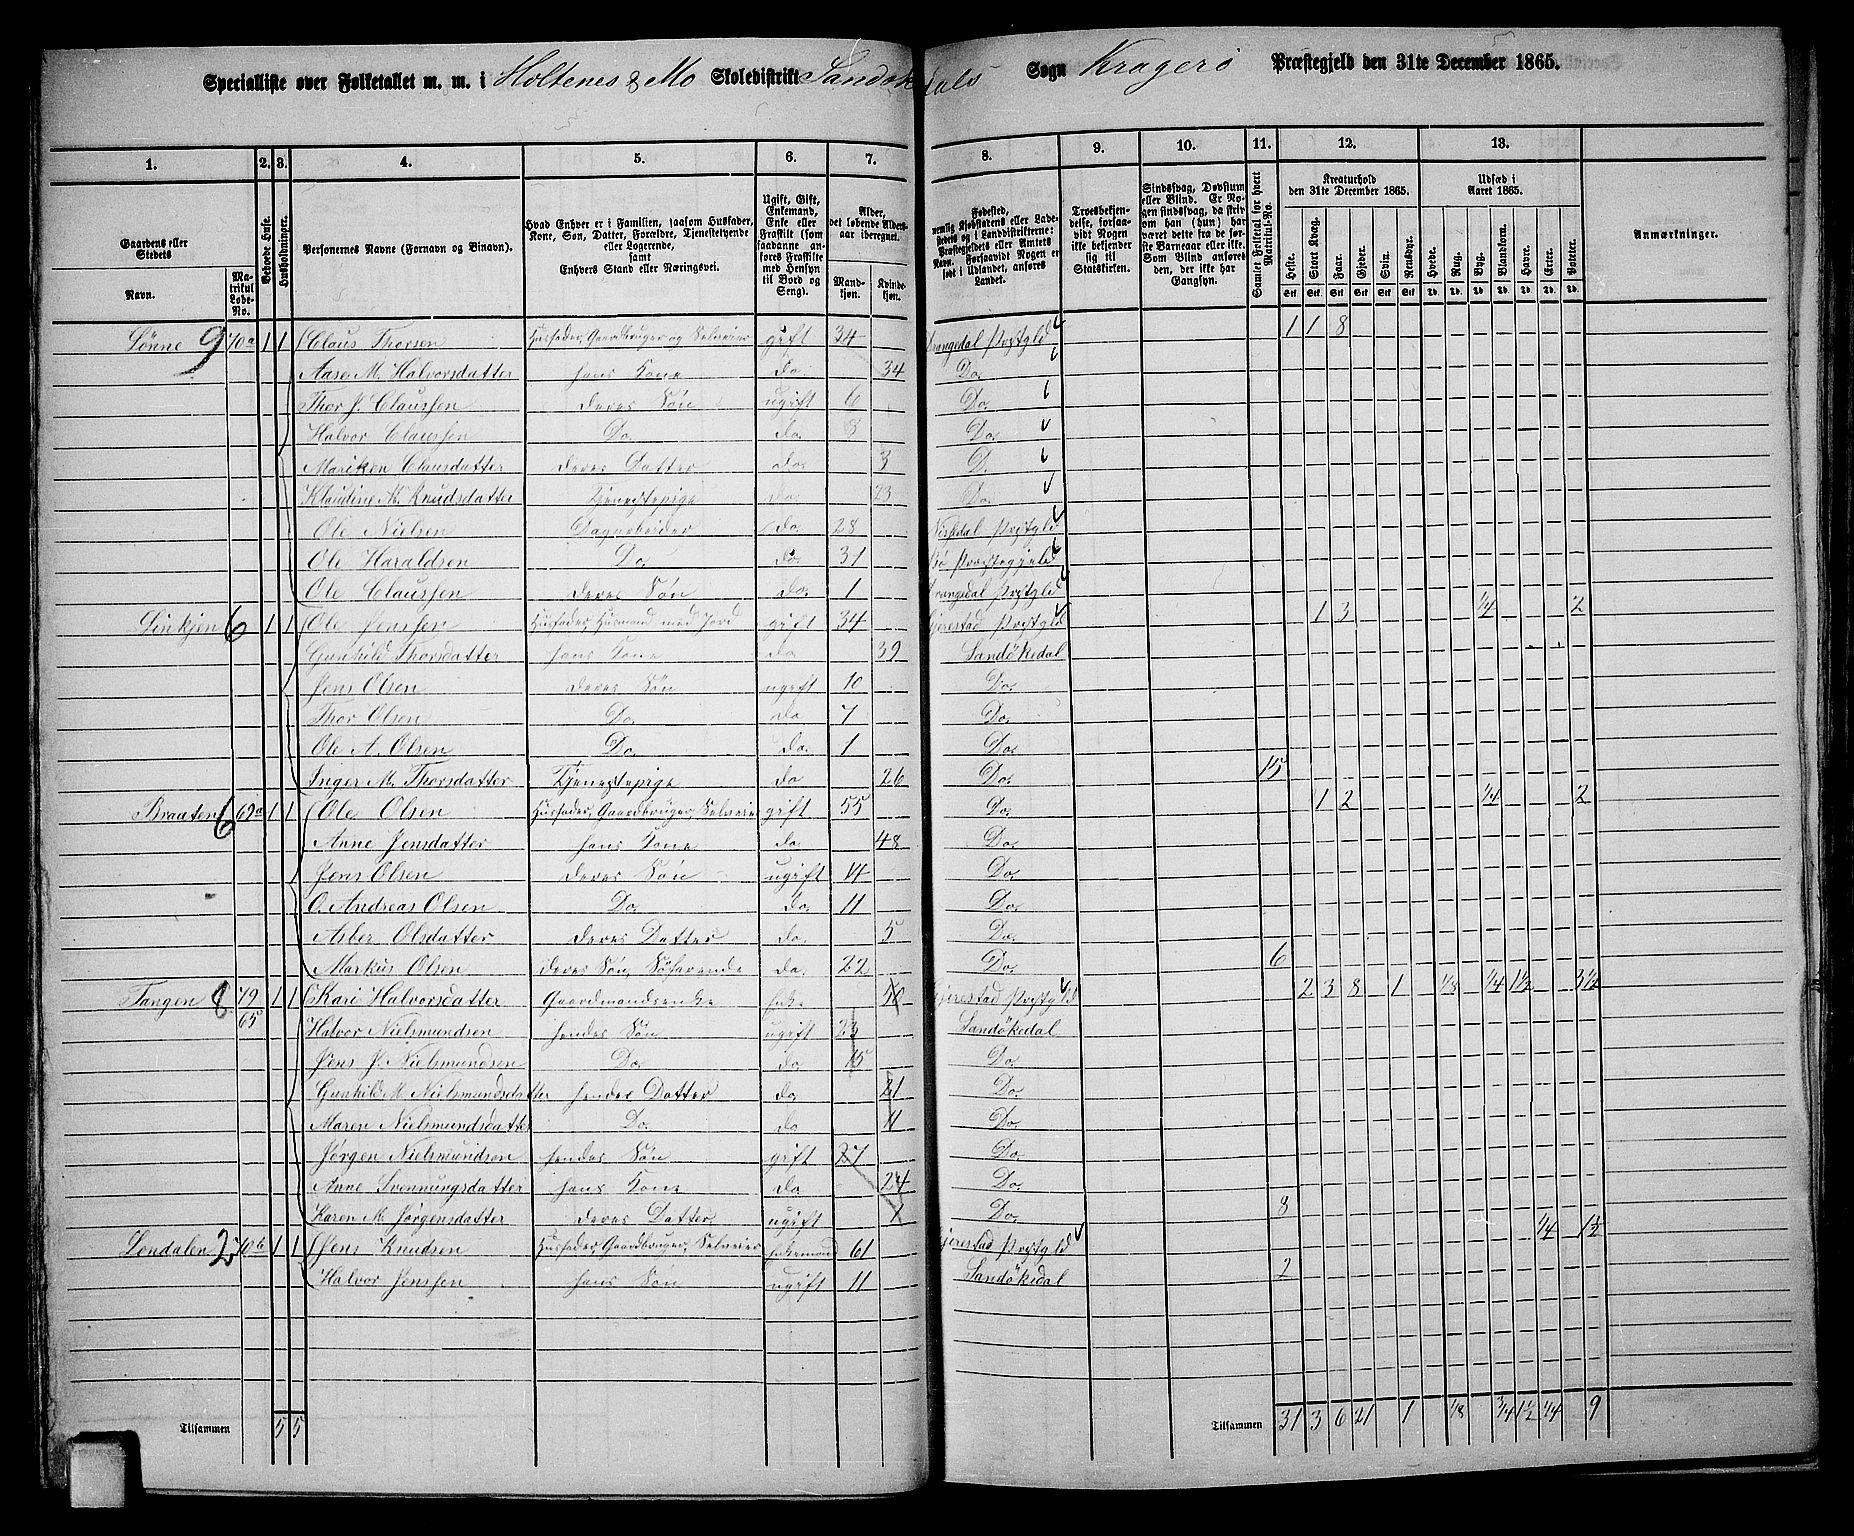 Specialliste over Folketallet m. m. i Holtenes & Mo Skoledistrikt Sandøkedals Sogn Kragerø Præstegjeld den 31te December 1865.
1. 2. 3. 4. 5. 6. 7. 8. 9. 10. 11. 12. 13.
Gaardens eller Stedets Navn. Matrikul Løbe-No. Beboede Huse. Husholdninger.
Personernes Navne (Fornavn og Binavn).
Hvad Enhver er i Familien, saasom Husfader, Kone, Søn, Datter, Forældre, Tjenestetyende eller Logerende, samt Enhvers Stand eller Næringsvei.
Ugift, Gift, Enkemand, Enke eller Fraskilt (som saadanne anføres Fraskilte med Hensyn til Bord og Seng).
Alder, det løbende Aldersaar iberegnet. Mandkjøn. Kvindekjøn.
Troesbekjendelse, forsaavidt Nogen ikke bekjender sig til Statskirken.
Sindssvag, Døvstum eller Blind. Er Nogen sindssvag, da skrives om han (hun) har været dette fra de første Barneaar eller ei. Som Blind anføres den, der ikke har Gangsyn.
Samlet Folketal for hvert Matrikul-No.
Kreaturhold den 31te December 1865. Heste. Stort Kvæg. Faar. Gjeder. Svin. Rensdyr.
Udsæd i Aaret 1865. Hvede. Rug. Byg. Blandkorn. Havre. Erter. Poteter.
Anmærkninger.
Lønne 9 70a 1 1 Claus Thorsen Husfader, Gaardbruger og Selveier gift 34 Drangedal Prstgld 1 1 8
Aase M. Halvorsdatter hans Kone do. 34 Do.
Thor J. Claussen deres Søn ugift 6 Do.
Halvor Claussen Do. do. 8 Do.
Mariken Clausdatter deres Datter do. 3 D.
Klaudine M. Knudsdatter Tjenestepige do. 23 Do.
Ole Nielsen Dagarbeider do. 28 Nissedal Prstgld
Ole Haraldsen Do. do. 31 Bø Præstegjeld
Ole Claussen deres Søn do. 1 Drangedal Prstgld
Sinkjen 6 1 1 Ole Jenssen Husfader, Husmand med Jord gift 34 Gjerestad Prstgld 1 3 1/4 2
Gunhild Thorsdatter hans Kone do 39 Sandökedal
Jens Olsen deres Søn ugift 10 Do.
Thor Olsen Do. do 7 Do.
Ole A. Olsen Do. do. 1 Do.
Inger M. Thorsdatter Tjenestepige do 26 Do. 15
Braaten 6 69a 1 1 Ole Olsen Husfader, Gaardbruger, Selveier gift 55 Do. 1 2 1/4 2
Anne Jensdatter hans Kone do. 48 Do.
Jens Olsen deres Søn ugift 14 Do.
O. Andreas Olsen Do. do. 11 Do.
Asber Olsdatter deres Datter do. 5 Do.
Markus Olsen deres Søn, Söfarende do. 22 Do. 6
Tangen 8 79 1 1 Kari Halvorsdatter Gaardmandsenke Enke 50 Gjerestad Prstgld 2 3 8 1 1/8 1/4 1 1/2 3 1/2
65 Halvor Nielsmundsen hendes Søn ugift 23 Sandökedal
Jens J. Nielsmundsen Do. do 15 Do.
Gunhild M. Nielsmundsdatter hendes Datter do 21 Do.
Maren Nielsmundsdatter Do. do 11 Do.
Jørgen Nielsmundsen hendes Søn gift 27 Do.
Anne Svennungsdatter hans Kone do 24 Do.
Karen M. Jørgensdatter deres Datter ugift 1 Do. 8
Lendalen 2 70b 1 1 Jens Knudsen Husfader, Gaardbruger, Selveier Enkemand 61 Gjerestad Prstgld 1/4 1 1/2
Halvor Jenssen hans Søn ugift 11 Sandökedal 2
Tilsammen 5 5 Tilsammen 31 3 6 21 1 1/8 3/4 1 1/2 1/4 9